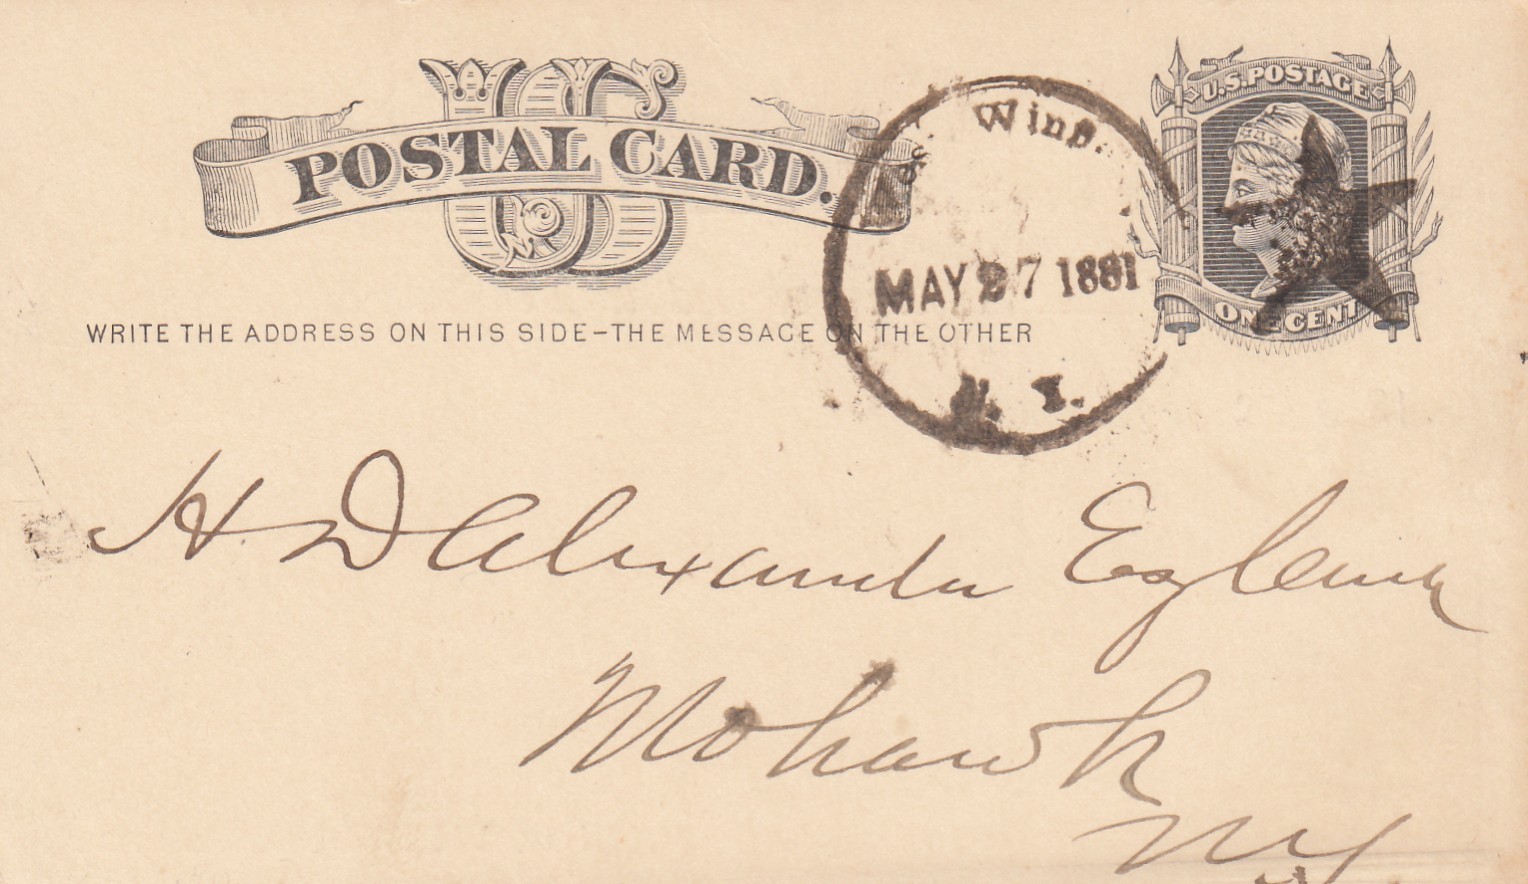 US
POSTAL CARD.
U.S. POSTAGE
ONE CENT
WRITE THE ADDRESS ON THIS SIDE-THE MESSAGE ON THE OTHER
Wind.
MAY 27 1881
N. Y.
H D Alexander Esq
Mohawk
NY